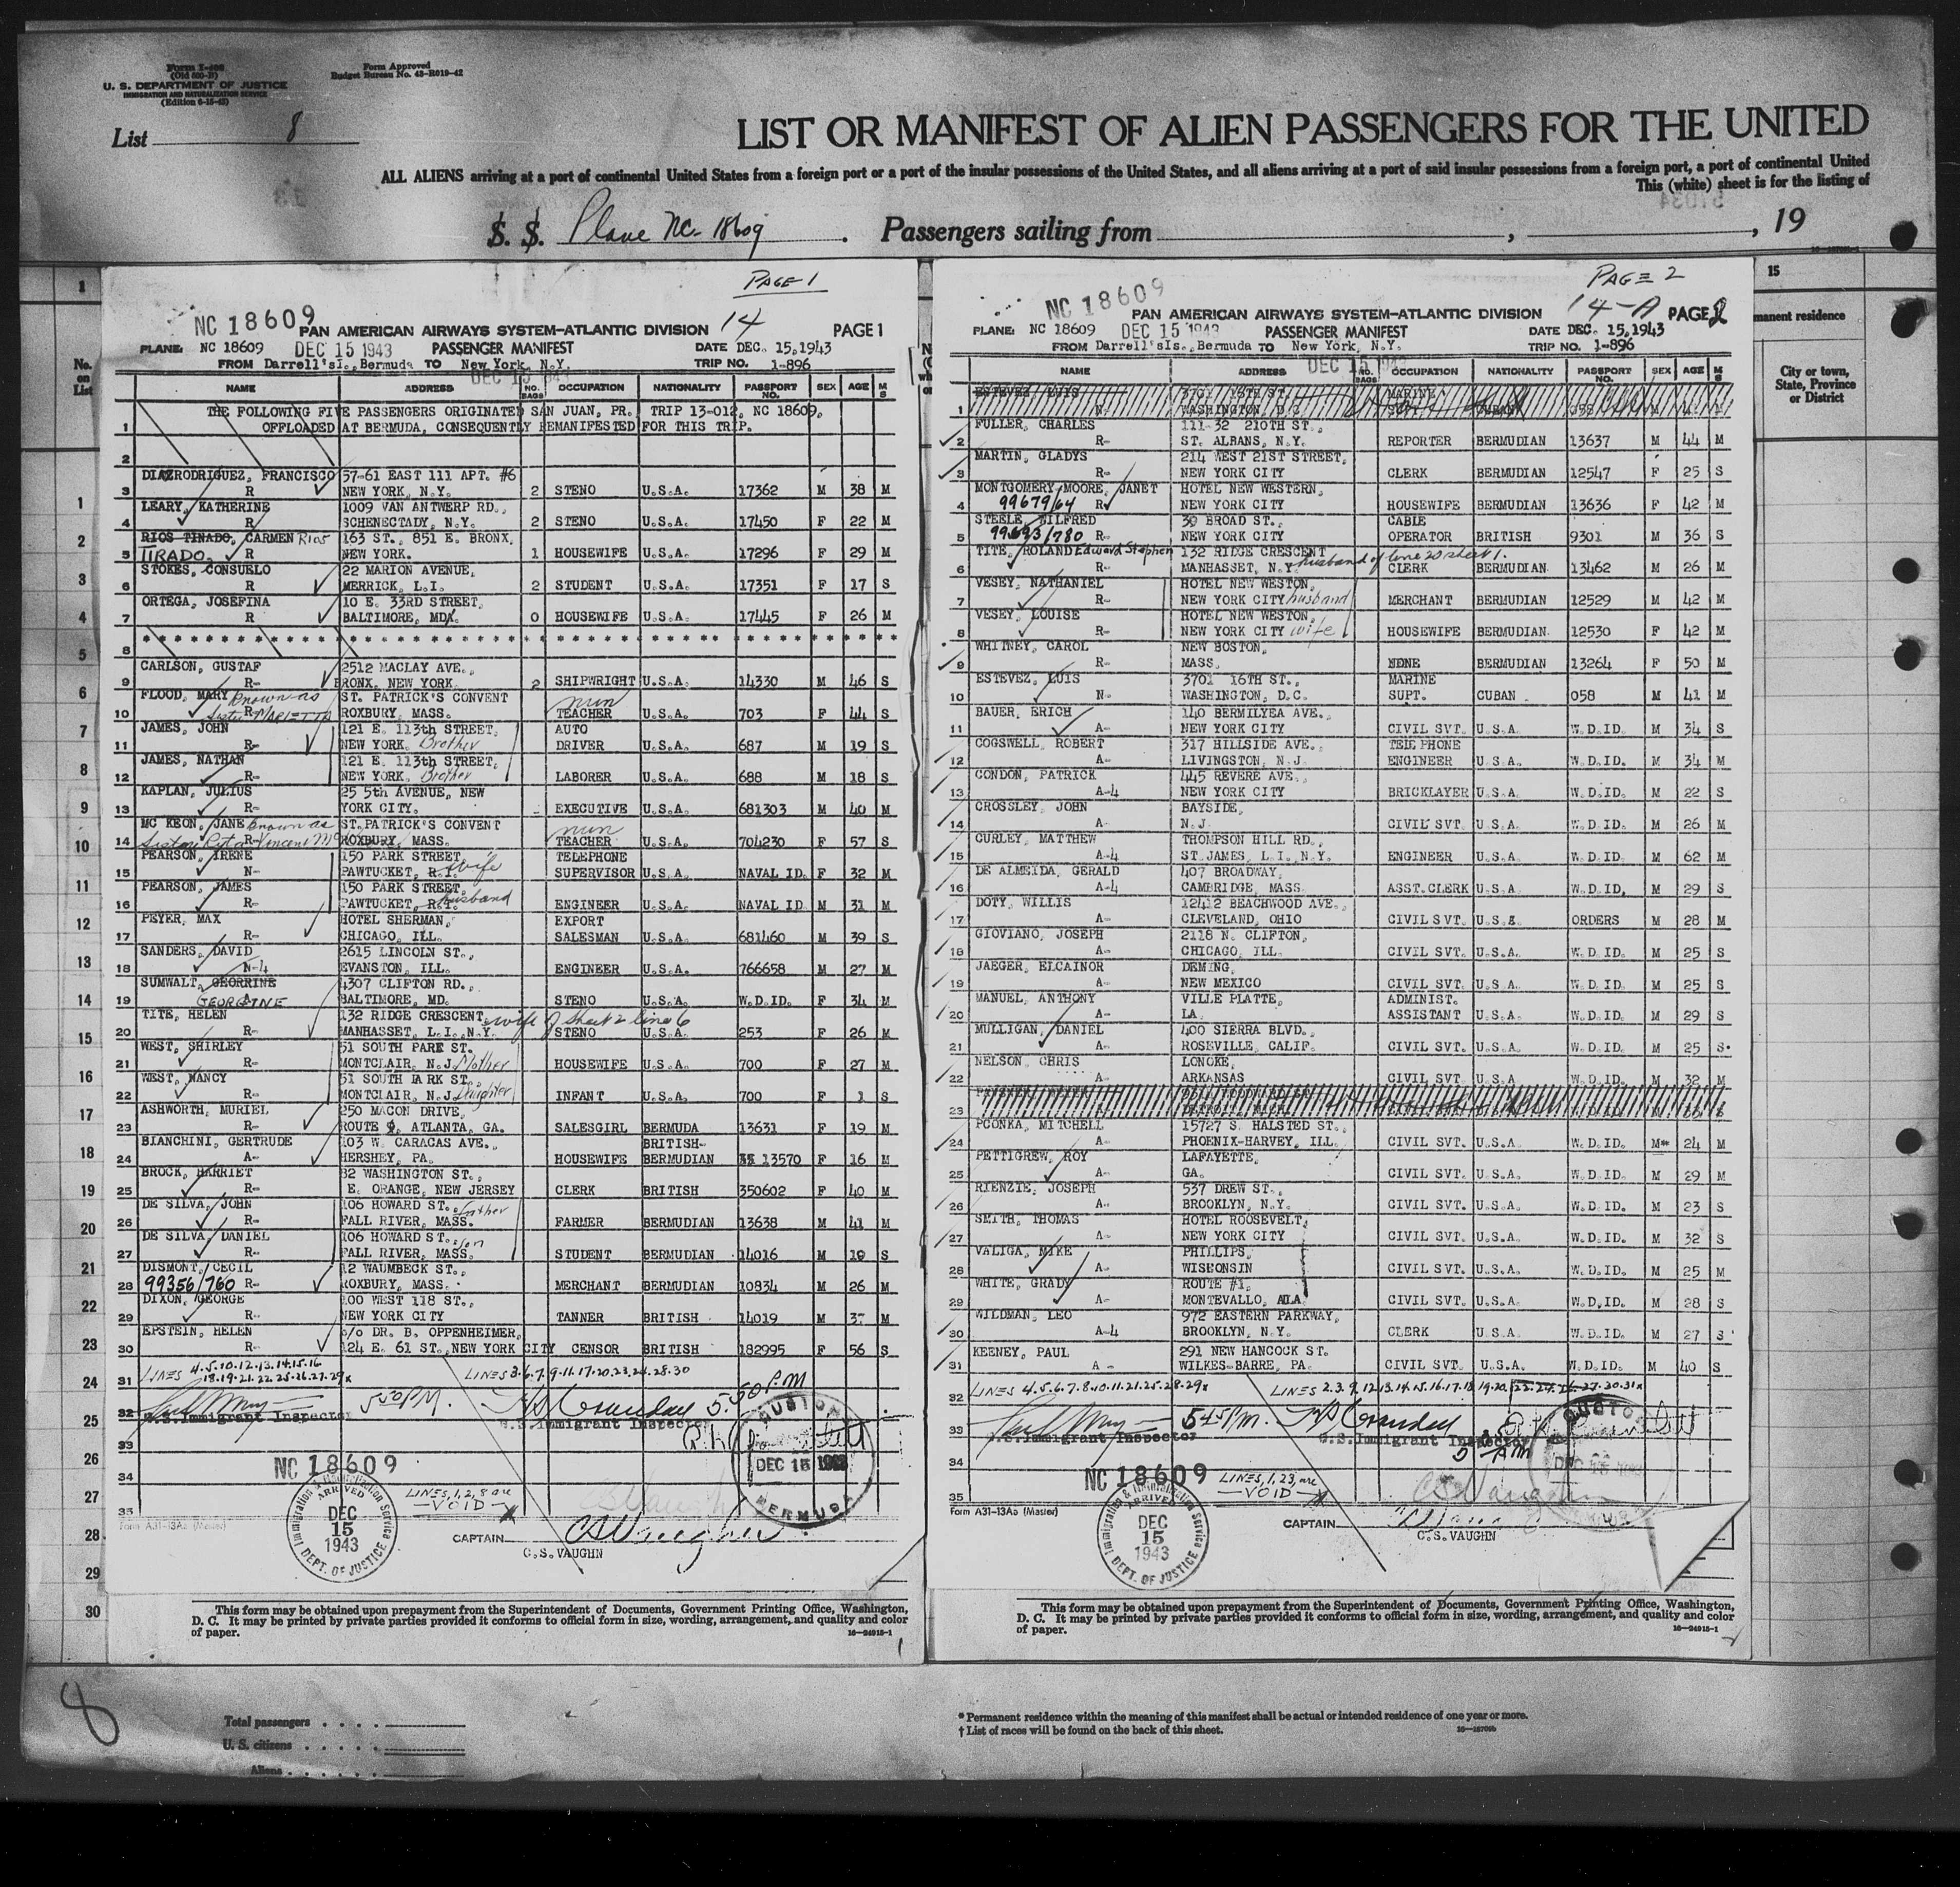 Form I-466
(Old 600-B)
U. S. DEPARTMENT OF JUSTICE
IMMIGRATION AND NATURALIZATION SERVICE
Form Approved
Budget Bureau No. 43-R019-42
List 8
LIST OR MANIFEST OF ALIEN PASSENGERS FOR THE UNITED
ALL ALIENS arriving at a port of continental United States from a foreign port or a port of the insular possessions of the United States, and all aliens arriving at a port of said insular possessions from a foreign port, a port of continental United
This (white) sheet is for the listing of
S. S. Plane NC-18609. Passengers sailing from , , 19
PAGE 1
NC 18609 PAN AMERICAN AIRWAYS SYSTEM—ATLANTIC DIVISION 14 PAGE 1
PLANE: NC 18609 DEC 15 1943 PASSENGER MANIFEST DATE DEC. 15,1943
FROM Darrell'sI., Bermuda TO New York, N.Y. TRIP NO. 1-896
NAME ADDRESS NO. BAGS OCCUPATION NATIONALITY PASSPORT NO. SEX AGE M S
THE FOLLOWING FIVE PASSENGERS ORIGINATED SAN JUAN, PR., TRIP 13-012, NC 18609,
1 OFFLOADED AT BERMUDA, CONSEQUENTLY REMANIFESTED FOR THIS TRIP.
2
DIAZRODRIGUEZ, FRANCISCO 57-61 EAST 111 APT. #6
3 R NEW YORK, N.Y. 2 STENO U.S.A. 17362 M 38 M
LEARY, KATHERINE 1009 VAN ANTWERP RD.,
4 R SCHENECTADY, N.Y. 2 STENO U.S.A. 17450 F 22 M
RIOS TINADO, CARMEN Rios 163 ST., 851 E. BRONX,
5 TIRADO. R NEW YORK. 1 HOUSEWIFE U.S.A. 17296 F 29 M
STOKES, CONSUELO 22 MARION AVENUE,
6 R MERRICK, L.I. 2 STUDENT U.S.A. 17351 F 17 S
ORTEGA, JOSEFINA 10 E. 33RD STREET,
7 R BALTIMORE, MD. 0 HOUSEWIFE U.S.A. 17445 F 26 M
8
CARLSON, GUSTAF 2512 MACLAY AVE.,
9 R- BRONX, NEW YORK 2 SHIPWRIGHT U.S.A. 14330 M 46 S
FLOOD, MARY known as ST. PATRICK'S CONVENT nun
10 Sister MARIETTA R- ROXBURY, MASS. TEACHER U.S.A. 703 F 44 S
JAMES, JOHN 121 E. 113th STREET, AUTO
11 R- NEW YORK. Brother DRIVER U.S.A. 687 M 19 S
JAMES, NATHAN 121 E. 113th STREET,
12 R- NEW YORK. Brother LABORER U.S.A. 688 M 18 S
KAPLAN, JULIUS 25 5th AVENUE, NEW
13 R- YORK CITY. EXECUTIVE U.S.A. 681303 M 40 M
MC KEON, JANE known as ST. PATRICK'S CONVENT nun
14 Sister Rita Vincent R- ROXBURY, MASS. TEACHER U.S.A. 704230 F 57 S
PEARSON, IRENE 150 PARK STREET, TELEPHONE
15 N- PAWTUCKET, R.I. wife SUPERVISOR U.S.A. NAVAL ID. F 32 M
PEARSON, JAMES 150 PARK STREET,
16 R- PAWTUCKET, R.I. husband ENGINEER U.S.A. NAVAL ID M 31 M
PEYER, MAX HOTEL SHERMAN, EXPORT
17 R- CHICAGO, ILL. SALESMAN U.S.A. 681460 M 39 S
SANDERS, DAVID 2615 LINCOLN ST.,
18 N-4 EVANSTON, ILL. ENGINEER U.S.A. 766658 M 27 M
SUMWALT, GEORRINE 4307 CLIFTON RD.,
19 GEORGINE BALTIMORE, MD. STENO U.S.A. W.D.ID. F 34 M
TITE, HELEN 132 RIDGE CRESCENT, wife of sheet 2 line 6
20 R- MANHASSET, L.I., N.Y. STENO U.S.A. 253 F 26 M
WEST, SHIRLEY 51 SOUTH PARK ST.
21 R- MONTCLAIR, N.J. Mother HOUSEWIFE U.S.A. 700 F 27 M
WEST, NANCY 51 SOUTH PARK ST.,
22 R- MONTCLAIR, N.J. Daughter INFANT U.S.A. 700 F 1 S
ASHWORTH, MURIEL 250 MACON DRIVE,
23 R- ROUTE , ATLANTA, GA. SALESGIRL BERMUDA 13631 F 19 M
BIANCHINI, GERTRUDE 103 W. CARACAS AVE., BRITISH-
24 A- HERSHEY, PA. HOUSEWIFE BERMUDIAN 13570 F 16 M
BROCK, HARRIET 82 WASHINGTON ST.,
25 R- E. ORANGE, NEW JERSEY CLERK BRITISH 350602 F 40 M
DE SILVA, JOHN 106 HOWARD ST., father
26 R- FALL RIVER, MASS. FARMER BERMUDIAN 13638 M 41 M
DE SILVA, DANIEL 106 HOWARD ST., son
27 R- FALL RIVER, MASS. STUDENT BERMUDIAN 14016 M 19 S
DISMONT, CECIL 12 WAUMBECK ST.,
28 99356/760 R- ROXBURY, MASS. MERCHANT BERMUDIAN 10834 M 26 M
DIXON, GEORGE 100 WEST 118 ST.,
29 R- NEW YORK CITY TANNER BRITISH 14019 M 37 M
EPSTEIN, HELEN c/o DR. B. OPPENHEIMER,
30 R- 124 E. 61 ST., NEW YORK CITY CENSOR BRITISH 182995 F 56 S
31 LINES 4.5.10.12.13.14.15.16 LINES 3.6.7.9.11.17.20.23.24.28.30
18.19.21.22.25.26.27.29x
32 5:50PM. 5:50 P.M
U.S. Immigrant Inspector U.S. Immigrant Inspector
33
NC 18609 DEC 15 1943
34 LINES, 1, 2, 8 are
—VOID—
35
Form A31-13Ao (Master)
Immigration & Naturalization Service ARRIVED DEC 15 1943 DEPT. OF JUSTICE
CUSTOMS BERMUDA
CAPTAIN CSVaughn
C.S.VAUGHN
PAGE 2
NC 18609 PAN AMERICAN AIRWAYS SYSTEM—ATLANTIC DIVISION 14-A PAGE 2
PLANE: NC 18609 DEC 15 1943 PASSENGER MANIFEST DATE DEC. 15,1943
FROM Darrell'sIs., Bermuda TO New York, N.Y. TRIP NO. 1-896
NAME ADDRESS NO. BAGS OCCUPATION NATIONALITY PASSPORT NO. SEX AGE M S
ESTEVEZ, LUIS 3701 16TH ST. MARINE
1 N- WASHINGTON, D.C. SUPT. CUBAN 058 M 41 M
FULLER, CHARLES 111-32 210TH ST.,
2 R- ST. ALBANS, N.Y. REPORTER BERMUDIAN 13637 M 44 M
MARTIN, GLADYS 214 WEST 21ST STREET,
3 R- NEW YORK CITY CLERK BERMUDIAN 12547 F 25 S
MONTGOMERY MOORE, JANET HOTEL NEW WESTERN,
4 99679/64 R- NEW YORK CITY HOUSEWIFE BERMUDIAN 13636 F 42 M
STEELE, WILFRED 30 BROAD ST., CABLE
5 99693/780 R- NEW YORK CITY OPERATOR BRITISH 9301 M 36 S
TITE, ROLAND Edward Stephen 132 RIDGE CRESCENT husband of line 20 sheet 1.
6 R- MANHASSET, N.Y. CLERK BERMUDIAN 13462 M 26 M
VESEY, NATHANIEL HOTEL NEW WESTON,
7 R- NEW YORK CITY husband MERCHANT BERMUDIAN 12529 M 42 M
VESEY, LOUISE HOTEL NEW WESTON,
8 R- NEW YORK CITY wife HOUSEWIFE BERMUDIAN 12530 F 42 M
WHITNEY, CAROL NEW BOSTON,
9 R- MASS. NONE BERMUDIAN 13264 F 50 M
ESTEVEZ, LUIS 3701 16TH ST., MARINE
10 N- WASHINGTON, D.C. SUPT. CUBAN 058 M 41 M
BAUER, ERICH 140 BERMILYEA AVE.,
11 A- NEW YORK CITY CIVIL SVT. U.S.A. W.D.ID. M 34 S
COGSWELL, ROBERT 317 HILLSIDE AVE., TELEPHONE
12 A- LIVINGSTON, N.J. ENGINEER U.S.A. W.D.ID. M 34 M
CONDON, PATRICK 445 REVERE AVE.,
13 A-4 NEW YORK CITY BRICKLAYER U.S.A. W.D.ID. M 22 S
CROSSLEY, JOHN BAYSIDE,
14 A- N.J. CIVIL SVT. U.S.A. W.D.ID. M 26 M
CURLEY, MATTHEW THOMPSON HILL RD.,
15 A-4 ST.JAMES, L.I., N.Y. ENGINEER U.S.A. W.D.ID. M 62 M
DE ALMEIDA, GERALD 407 BROADWAY,
16 A-4 CAMBRIDGE, MASS. ASST.CLERK U.S.A. W.D.ID. M 29 S
DOTY, WILLIS 12412 BEACHWOOD AVE.,
17 A- CLEVELAND, OHIO CIVIL SVT. U.S.A. ORDERS M 28 M
GIOVIANO, JOSEPH 2118 N. CLIFTON,
18 A- CHICAGO, ILL. CIVIL SVT. U.S.A. W.D.ID. M 25 S
JAEGER, ELCAINOR DEMING,
19 A- NEW MEXICO CIVIL SVT. U.S.A. W.D.ID. M 25 S
MANUEL, ANTHONY VILLE PLATTE, ADMINIST.
20 A- LA. ASSISTANT U.S.A. W.D.ID. M 29 S
MULLIGAN, DANIEL 400 SIERRA BLVD.,
21 A- ROSEVILLE, CALIF. CIVIL SVT. U.S.A. W.D.ID. M 25 S
NELSON, CHRIS LONOKE,
22 A- ARKANSAS CIVIL SVT. U.S.A. W.D.ID. M 32 M
23 DETROIT, MICH.
PCONKA, MITCHELL 15727 S. HALSTED ST.,
24 A- PHOENIX-HARVEY, ILL. CIVIL SVT. U.S.A. W.D.ID. M 24 M
PETTIGREW, ROY LAFAYETTE,
25 A- GA. CIVIL SVT. U.S.A. W.D.ID. M 29 M
RIENZIE, JOSEPH 537 DREW ST.,
26 A- BROOKLYN, N.Y. CIVIL SVT. U.S.A. W.D.ID. M 23 S
SEITH, THOMAS HOTEL ROOSEVELT,
27 A- NEW YORK CITY CIVIL SVT. U.S.A. W.D.ID. M 32 S
VALIGA, MIKE PHILLIPS,
28 A- WISBONSIN CIVIL SVT. U.S.A. W.D.ID. M 25 M
WHITE, GRADY ROUTE #1,
29 A- MONTEVALLO, ALA. CIVIL SVT. U.S.A. W.D.ID. M 28 S
WILDMAN, LEO 972 EASTERN PARKWAY,
30 A-4 BROOKLYN, N.Y. CLERK U.S.A. W.D.ID. M 27 S
KEENEY, PAUL 291 NEW HANCOCK ST.
31 A- WILKES-BARRE, PA. CIVIL SVT. U.S.A. W.D.ID. M 40 S
32 LINES 4.5.6.7.8.10.11.21.25.28.29x LINES 2.3.9.12.13.14.15.16.17.18 19.20.22.24.26.27.30.31x
33 5:45PM.
U.S. Immigrant Inspector U.S. Immigrant Inspector
34 NC 18609 LINES, 1, 23, are
—VOID—
35
Form A31-13Ao (Master)
Immigration & Naturalization Service ARRIVED DEC 15 1943 DEPT. OF JUSTICE
CAPTAIN
C.S.VAUGHN
No. on List
1
2
3
4
5
6
7
8
9
10
11
12
13
14
15
16
17
18
19
20
21
22
23
24
25
26
27
28
29
30
15
manent residence
City or town, State, Province or District
This form may be obtained upon prepayment from the Superintendent of Documents, Government Printing Office, Washington,
D. C. It may be printed by private parties provided it conforms to official form in size, wording, arrangement, and quality and color
of paper. 16—24915-1
This form may be obtained upon prepayment from the Superintendent of Documents, Government Printing Office, Washington,
D. C. It may be printed by private parties provided it conforms to official form in size, wording, arrangement, and quality and color
of paper. 16—24915-1
8
Total passengers
U.S. citizens
Aliens
* Permanent residence within the meaning of this manifest shall be actual or intended residence of one year or more.
† List of races will be found on the back of this sheet.